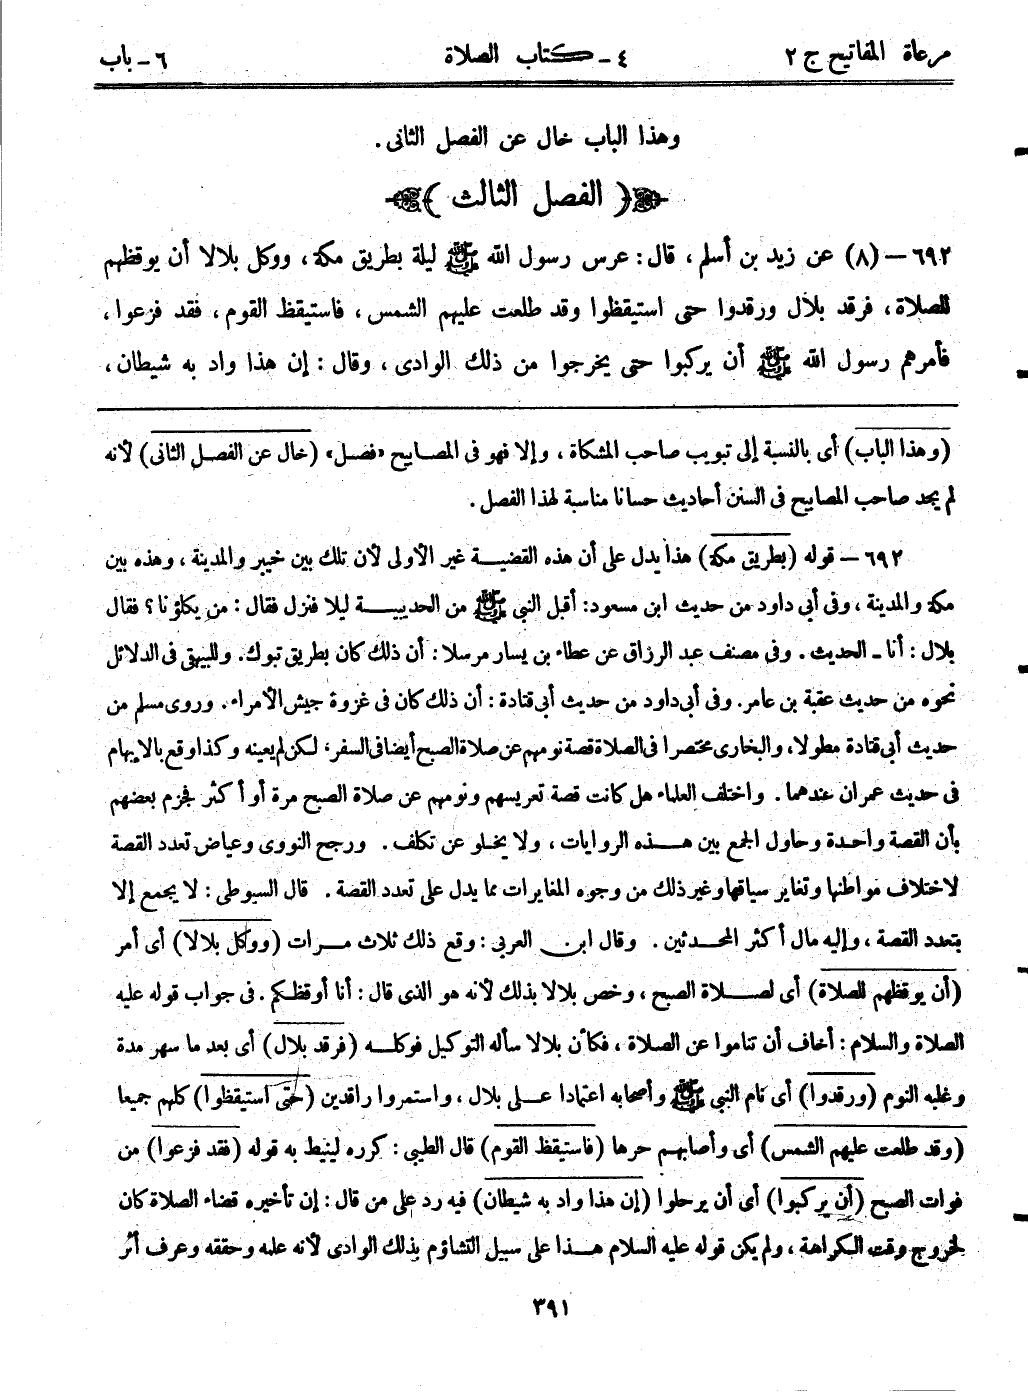 مرعاة المفاتيح ج ٢
٤ - كتاب الصلاة
٦ - باب
وهذا الباب خال عن الفصل الثانى .
( الفصل الثالث )
٦٩٢ – (٨) عن زيد بن أسلم ، قال : عرس رسول الله ﷺ ليلة بطريق مكة ، ووكل بلالا أن يوقظهم
للصلاة ، فرقد بلال ورقدوا حتى استيقظوا وقد طلعت عليهم الشمس ، فاستيقظ القوم ، فقد فزعوا ،
فأمرهم رسول الله ﷺ أن يركبوا حتى يخرجوا من ذلك الوادى ، وقال : إن هذا واد به شيطان ،
(وهذا الباب) أى بالنسبة إلى تبويب صاحب المشكاة ، وإلا فهو فى المصابيح «فصل» (خال عن الفصل الثانى) لأنه
لم يجد صاحب المصابيح فى السنن أحاديث حسانا مناسبة لهذا الفصل .
٦٩٢ – قوله (بطريق مكة) هذا يدل على أن هذه القضية غير الأولى لأن تلك بين خيبر والمدينة ، وهذه بين
مكة والمدينة ، وفى أبي داود من حديث ابن مسعود: أقبل النبي ﷺ من الحديبية ليلا فنزل فقال : من يكلؤنا ؟ فقال
بلال : أنا ـ الحديث . وفى مصنف عبد الرزاق عن عطاء بن يسار مرسلا : أن ذلك كان بطريق تبوك. وللبيهقى فى الدلائل
نحوه من حديث عقبة بن عامر. وفى أبى داود من حديث أبى قتادة : أن ذلك كان فى غزوة جيش الأمراء. وروى مسلم من
حديث أبى قتادة مطولا، والبخارى مختصرا فى الصلاة قصة نومهم عن صلاة الصبح أيضا فى السفر، لكن لم يعينه وكذا وقع بالإبهام
فى حديث عمران عندهما . واختلف العلماء هل كانت قصة تعريسهم ونومهم عن صلاة الصبح مرة أو أكثر فجزم بعضهم
بأن القصة واحدة وحاول الجمع بين هذه الروايات ، ولا يخلو عن تكلف . ورجح النووى وعياض تعدد القصة
لاختلاف مواطنها وتغاير سياقها وغير ذلك من وجوه المغايرات مما يدل على تعدد القصة . قال السيوطى : لا يجمع إلا
بتعدد القصة ، وإليه مال أكثر المحدثين . وقال ابن العربى : وقع ذلك ثلاث مرات (ووكل بلالا) أى أمر
(أن يوقظهم للصلاة) أى لصلاة الصبح ، وخص بلالا بذلك لأنه هو الذى قال : أنا أوقظكم . فى جواب قوله عليه
الصلاة والسلام : أخاف أن تناموا عن الصلاة ، فكأن بلالا سأله التوكيل فوكله (فرقد بلال) أى بعد ما سهر مدة
وغلبه النوم (ورقدوا) أى نام النبي ﷺ وأصحابه اعتمادا على بلال ، واستمروا راقدين (حتى استيقظوا) كلهم جميعا
(وقد طلعت عليهم الشمس) أى وأصابهم حرها (فاستيقظ القوم) قال الطيبي : كرره لينيط به قوله (فقد فزعوا) من
فوات الصبح (أن يركبوا) أى أن يرحلوا (إن هذا واد به شيطان) فيه رد على من قال : إن تأخيره قضاء الصلاة كان
لخروج وقت الكراهة ، ولم يكن قوله عليه السلام هذا على سبيل التشاؤم بذلك الوادى لأنه علمه وحققه وعرف أثر
٣٩١